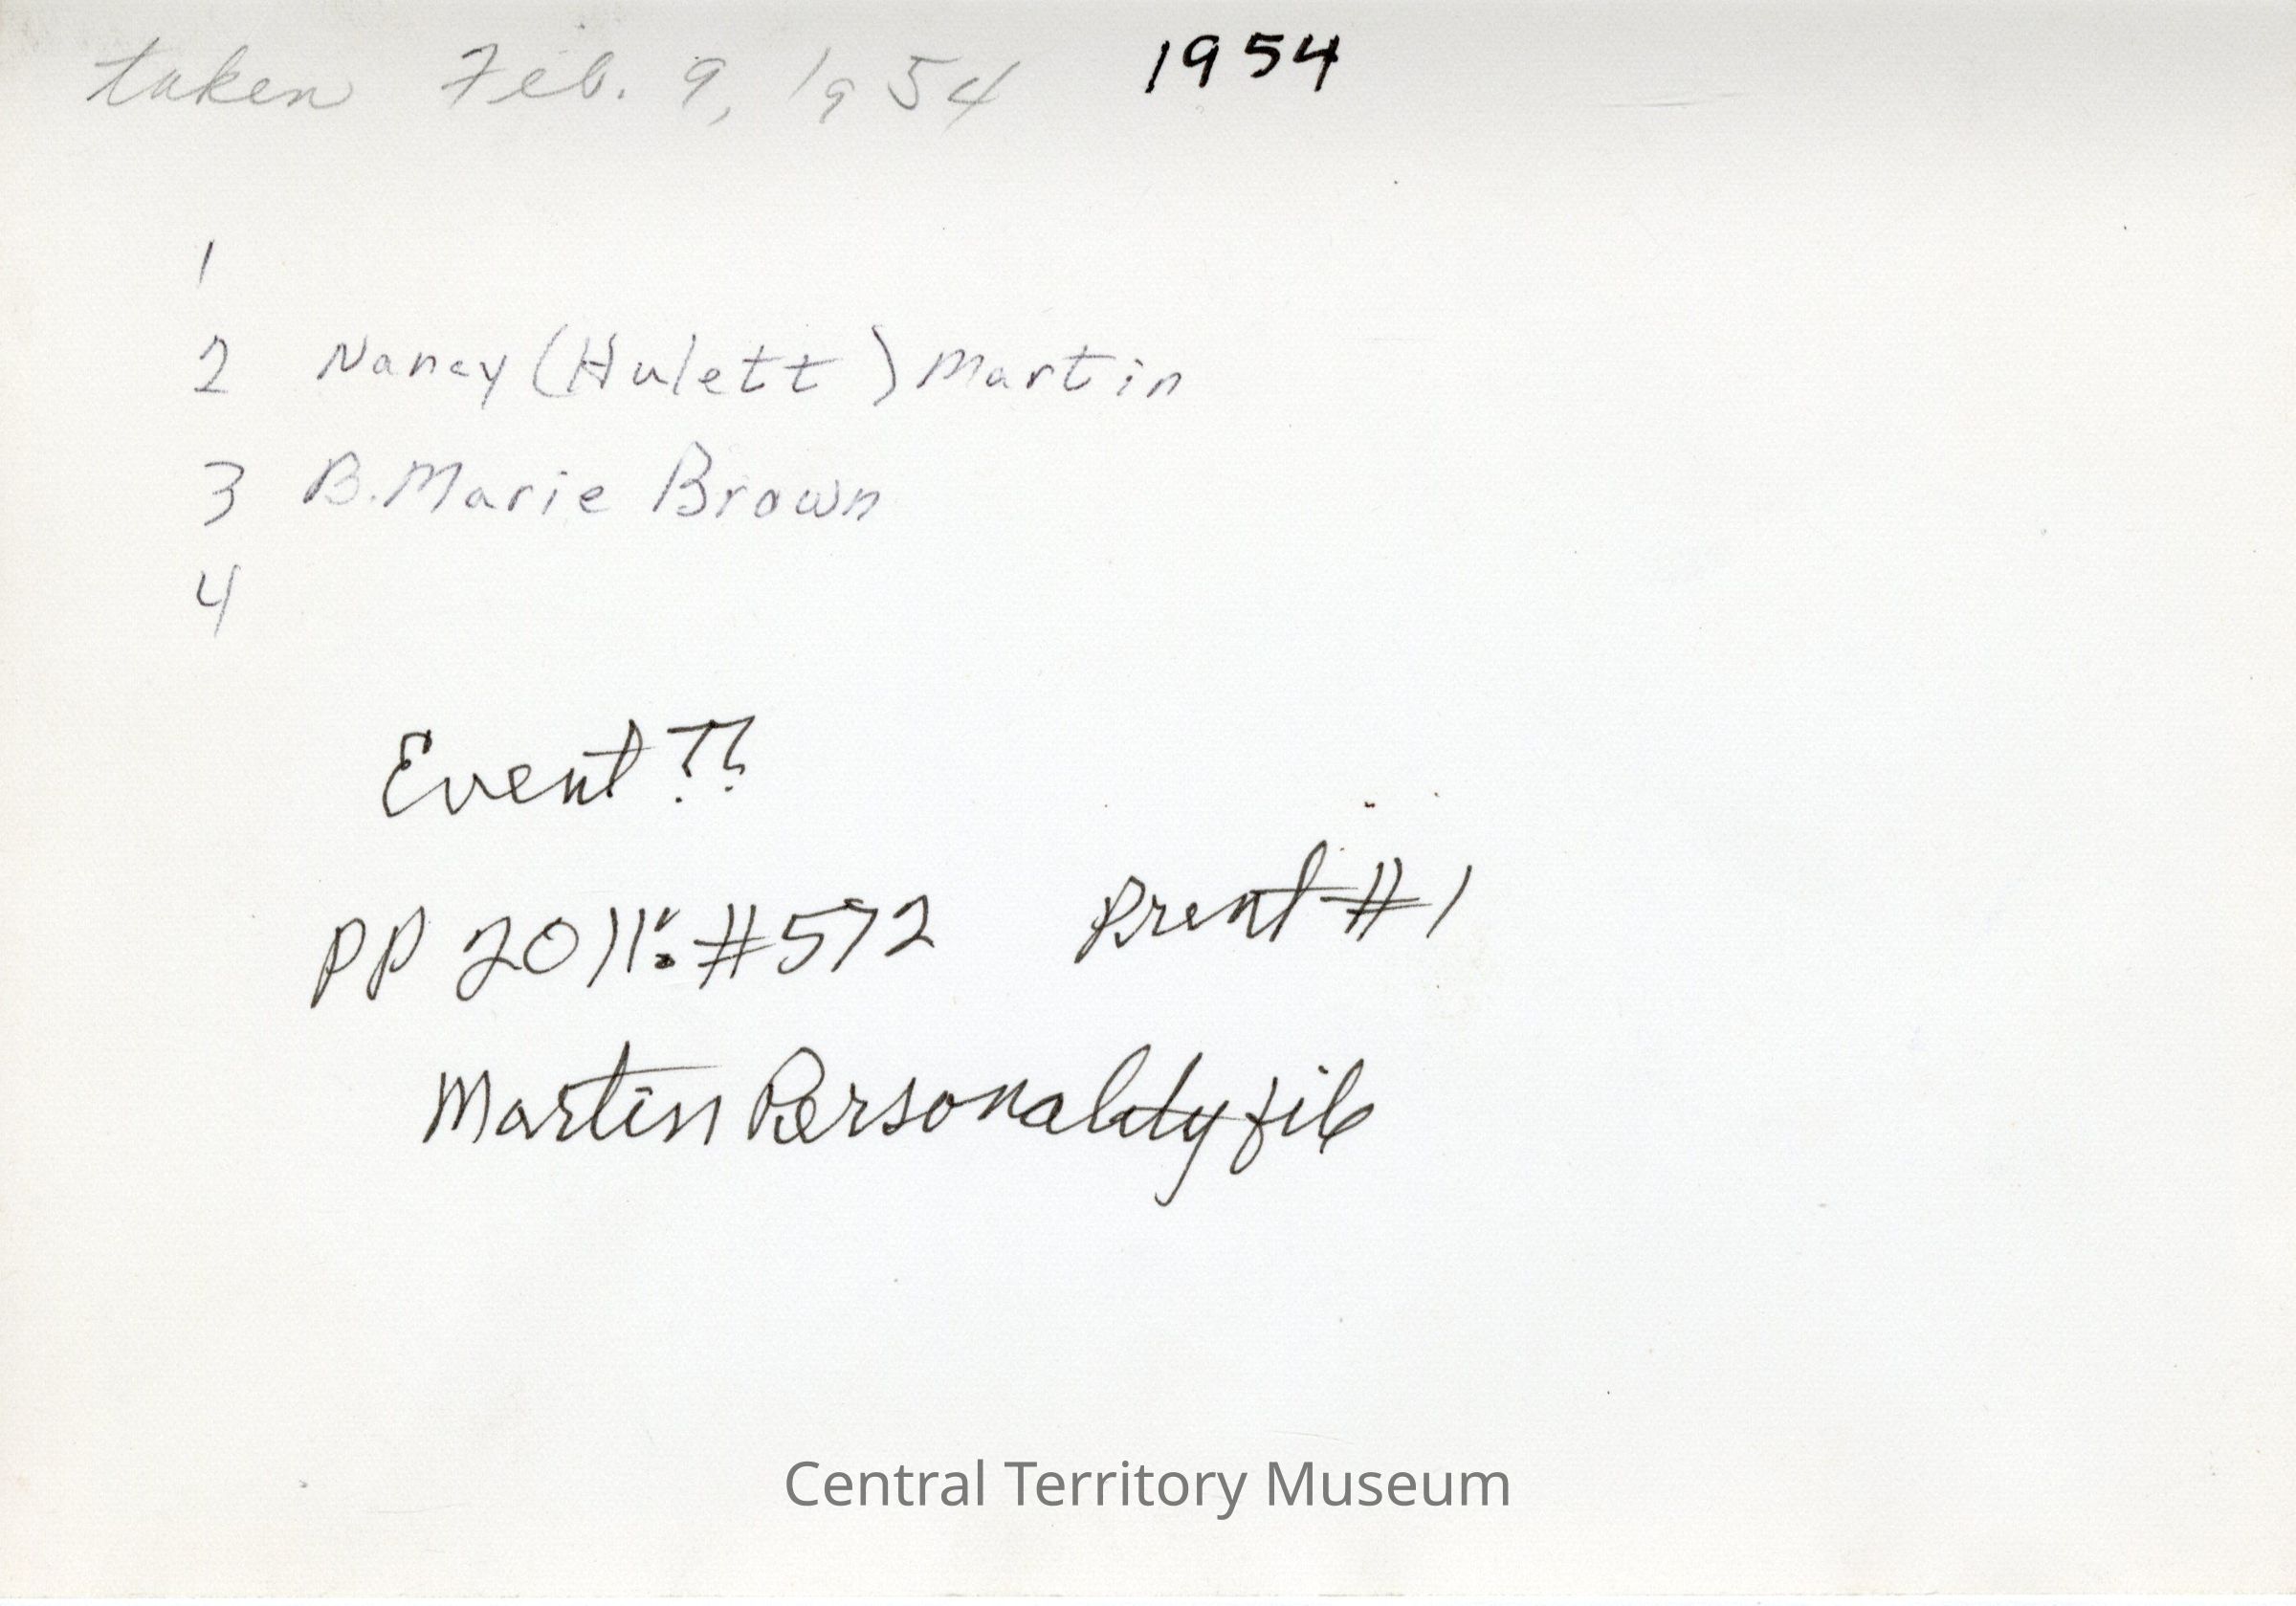 taken Feb. 9, 1954 1954
1
2 Nancy (Hulett) Martin
3 B. Marie Brown
4
Event ??
PP 2011: #572 Print #1
Martin Personality file
Central Territory Museum